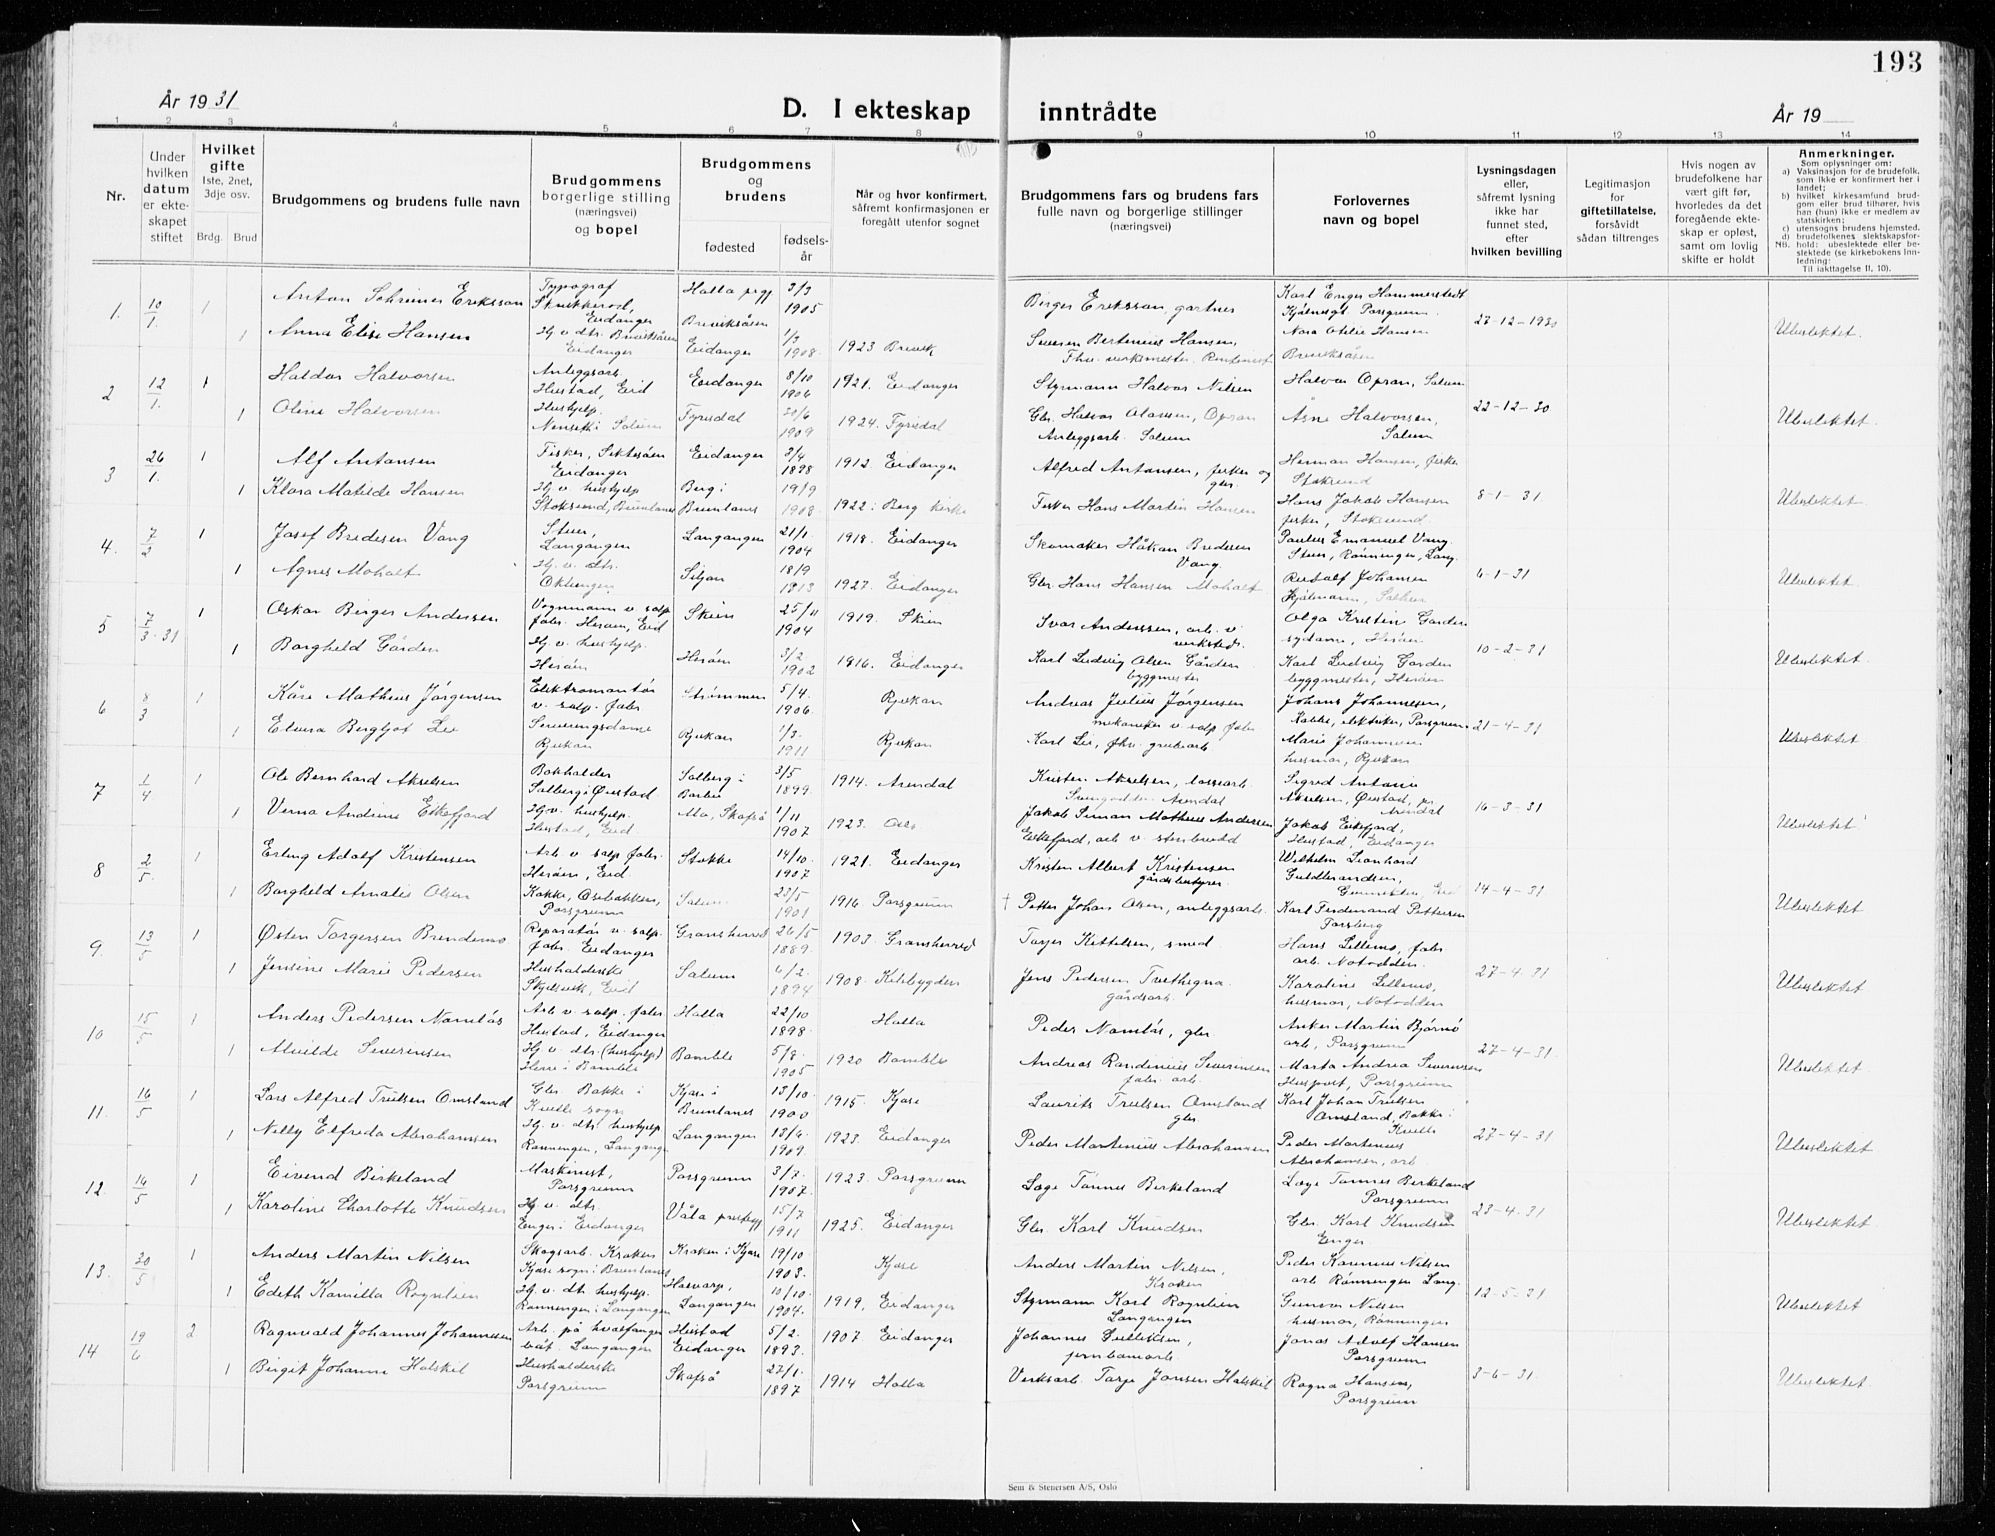 193
År 19 31
D. I ekteskap inntrådte
År 19
1 2 3 4 5 6 7 8 9 10 11 12 13 14
Nr.
Under hvilken datum er ekteskapet stiftet
Hvilket gifte
1ste, 2net, 3dje osv.
Brdg. Brud
Brudgommens og brudens fulle navn
Brudgommens borgerlige stilling (næringsvei) og bopel
Brudgommens og brudens
fødested
fødselsår
Når og hvor konfirmert, såfremt konfirmasjonen er foregått utenfor sognet
Brudgommens fars og brudens fars fulle navn og borgerlige stillinger (næringsvei)
Forlovernes navn og bopel
Lysningsdagen eller, såfremt lysning ikke har funnet sted, efter hvilken bevilling
Legitimasjon for giftetillatelse, forsåvidt sådan tiltrenges
Hvis nogen av brudefolkene har vært gift før, hvorledes da det foregående ekteskap er opløst, samt om lovlig skifte er holdt
Anmerkninger.
Som oplysninger om:
a) Vaksinasjon for de brudefolk, som ikke er konfirmert her i landet;
b) hvilket kirkesamfund brudgom eller brud tilhører, hvis han (hun) ikke er medlem av statskirken;
c) utensogns brudens hjemsted.
d) brudefolkenes slektskapsforhold: ubeslektede eller beslektede (se kirkebokens innledning:
NB. Til iakttagelse II, 10).
1. 10/1. 1 Anton Schreiner Eriksson Typograf Eidanger Holla pgj 3/3 1905 Birger Eriksson, gartner Karl Enger Hammerstedt Porsgrunn. 27-12-1930
1 Anna Elise Hansen Hj. v. dtr. Breviksåsen Eidanger Breviksåsen Eidanger 1/3 1908. 1923 Brevik Severin Bertinius Hansen, Fhv. verksmester. Nora Otelie Hansen Breviksåsen Ubeslektet.
2 12/1. 1 Haldor Halvorsen Anleggsarb. Heistad, Eid Eidanger 8/10 1906 1921. Eidanger Styrmann Halvor Nilsen Halvor Opran, Salum 22-12-30
1 Oline Halvorsen Hushjelp. Nenset i Solum Fyresdal 20/6 1909 1924. Fyresdal Gbr. Halvor Olausen, Opran Anleggsarb. Solum Åsne Halvorsen, Solum Ubeslektet.
3 26/1. 1 Alf Antonsen Fisker, Siktesøen Eidanger Eidanger 3/4 1898 1912. Eidanger Alfred Antonsen, fisker og gbr. Herman Hansen, fisker Stoksund 8-1-31
1 Klara Matilde Hansen Hj. v. hushjelp Stoksund, Brunlanes Berg i Brunlanes 19/9 1908. 1922: Berg kirke Fisker Hans Martin Hansen Hans Jakob Hansen fisker, Stoksund. Ubeslektet.
4. 7/2 1 Josef Bredesen Vang Stuer, Langangen Langangen 21/1. 1904 1918. Eidanger Skomaker Håkon Bredesen Vang. Paulus Emanuel Vang. Stuer, Rønningen, Lang. 6-1-31
1 Agnes Moholt Hj. v. dtr. Siljan 18/9 1913 1927. Eidanger Gbr. Hans Hansen Moholt Rudolf Johansen Ubeslektet.
5 7/3-31 1 Oskar Birger Andersen Vognmann v. salp. fabr. Herøen, Eid Skien 25/11 1904 1919. Skien Ivar Anderssen, arb. v. verksted. Olga Kristin Gården sydame, Herøen 10-2-31
1 Borghild Gården Hj. v. hushjelp. Herøen Herøen 3/2 1902 1916. Eidanger Karl Ludvig Olsen Gården byggmester Karl Ludvig Gården byggmester, Herøen Ubeslektet.
6 8/3 1 Kåre Matheus Jørgensen Elektromontør v. salp. fabr Strømmen 5/4. 1906. Rjukan Andreas Julius Jørgensen mekaniker v. salp. fabr Johans Johannesen, Porsgrunn 21-4-31
1 Elvira Bergljot Lie Serveringsdame Rjukan Rjukan 1/3. 1911 Rjukan Karl Lie, fhv. grubearb Marie Johannesen husmor, Rjukan Ubeslektet
7 1/4 1 Ole Bernhard Akselsen Bokholder Solberg i Øiestad Solberg i Barbu 3/5 1899. 1914. Arendal Kristen Akselsen, lossearb. Arendal Sigrid Antonie Akselsen, Øiestad, pr. Arendal 16-3-31
1 Verna Andrine Eikefjord Hj. v. hushjelp. Heistad, Eid Mo, Skafså 1/11 1907. 1923. Oslo Jakob Simon Matheus Andersen Eikefjord, arb. v. stenbrudd Jakob Eikefjord, Heistad, Eidanger Ubeslektet
8 2/5. 1 Erling Adolf Kristensen Arb. v. salp. fabr. Herøen, Eid. Stokke 14/10. 1907 1921. Eidanger Kristen Albert Kristensen gårdsbestyrer. Wilhelm Leonhard Guldbrandsen, 14-4-31
1 Borghild Amalie Olsen Kokke, Osebakken, Porsgrunn Solum 23/5 1901 1916 Porsgrunn † Petter Johan Olsen, anleggsarb. Karl Ferdinand Pettersen Forsberg Ubeslektet
9. 13/5 1 Østen Torgersen Brendemo Reparatør v. salp. fabr. Eidanger Gransherred 26/5 1889. 1903. Gransherred Torjer Kittelsen, smed. Hans Lillemo, fabr. arb. Notodden. 27-4-31
1 Jensine Marie Pedersen Husholderske Skjelsvik, Eid Solum 6/2. 1894 1908. Kilebygden Jens Pedersen Tvethegna gårdsarb. Karoline Lillemo, husmor, Notodden Ubeslektet
10 15/5 1 Anders Pedersen Namløs Arb. v. salp. fabr Heistad, Eidanger Holla 22/10 1898. Holla Peder Namløs, gbr. Anker Martin Bjørnø arb., Porsgrunn 27-4-31.
1 Alvilde Severinsen Hj. v. dtr. (hushjelp) Herre i Bamble Bamble 5/8. 1905 1920 Bamble Andreas Randinius Severinsen fabr. arb. Marta Andrea Severinsen Porsgrunn Ubeslektet
11. 16/5 1 Lars Alfred Trulsen Omsland Gbr. Bakke i Kvelle sogn Kjose i Brunlanes 13/10. 1900 1915. Kjose Laurits Trulsen Omsland gbr. Karl Johan Trulsen Omsland, Bakke i Kvelle 27-4-31
1 Nelly Elfreda Abrahamsen Hj. v. dtr. hushjelp Rønningen, Langangen Langangen 13/6. 1909. 1923. Eidanger Peder Martenius Abrahamsen Peder Martenius Abrahamsen, arb. Ubeslektet
12. 16/5 1 Eivind Birkeland Maskinist, Porsgrunn Porsgrunn 3/7. 1907. 1923. Porsgrunn Låge Tønnes Birkeland Låge Tønnes Birkeland Porsgrunn 23-4-31
1 Karoline Charlotte Knudsen Hj. v. dtr. Enger i Eidanger Våle prestegj 15/7 1911 1925. Eidanger Gbr. Karl Knudsen Gbr. Karl Knudsen Enger. Ubeslektet.
13. 30/5 1 Anders Martin Nilsen Skogsarb. Kroken Kjose sogn i Brunlanes Kroken i Kjose 19/10 1903. Kjose Anders Martin Nilsen, Kroken Peder Karenius Nilsen arb. Rønningen Lang. 12-5-31
1 Edith Kamilla Rognlien Hj. v. dtr. hushjelp. Rønningen i Langangen Halvarp, Langangen 10/10. 1904. 1919, Eidanger Styrmann Karl Rognlien Langangen Gunvor Nilsen husmor, Rønningen Ubeslektet
14 19/6 2 Ragnvald Johannes Johannesen Arb. på hvalfanger båt. Langangen Heistad Eidanger 5/2. 1893. 1907 Eidanger Johannes Gulliksen, jernbanearb. Jonas Adolf Hansen Porsgrunn 3-6-31.
1 Birgit Johanne Halskil Husholderske Porsgrunn Skafså 27/1. 1897 1914 Holla Verksarb. Torje Jonsen Halskil Ragna Hansen, Porsgrunn Ubeslektet.
Sem & Stenersen A/S, Oslo